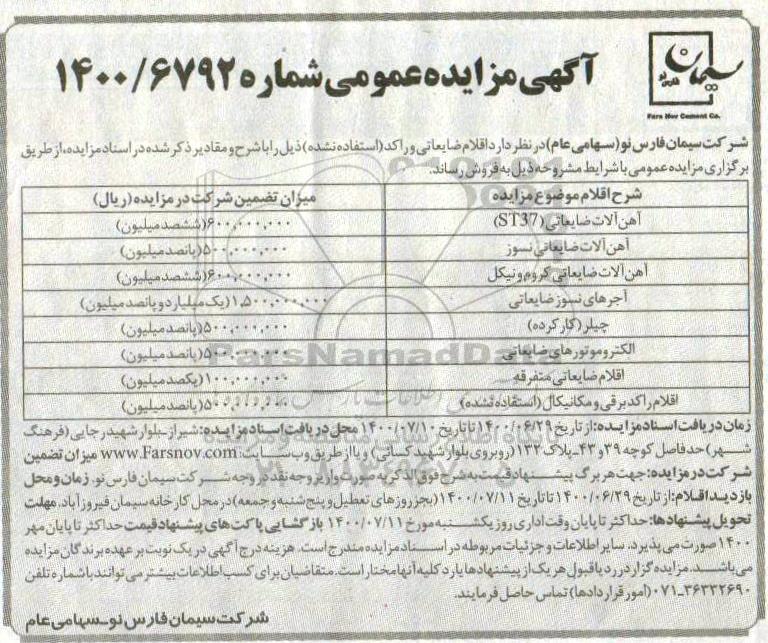 سیمان فارس نو
Fars Nov Cement Co.
آگهی مزایده عمومی شماره ۱۴۰۰/۶۷۹۲
شرکت سیمان فارس نو(سهامی عام)در نظر دارد اقلام ضایعاتی و راکد (استفاده نشده) ذیل را با شرح و مقادیر ذکر شده در اسناد مزایده، از طریق
برگزاری مزایده عمومی با شرایط مشروحه ذیل به فروش رساند.
شرح اقلام موضوع مزایده	میزان تضمین شرکت در مزایده (ریال)
آهن آلات ضایعاتی (ST37)	۶۰۰,۰۰۰,۰۰۰(ششصد میلیون)
آهن آلات ضایعاتی نسوز	۵۰۰,۰۰۰,۰۰۰(پانصد میلیون)
آهن آلات ضایعاتی کروم و نیکل	۶۰۰,۰۰۰,۰۰۰(ششصد میلیون)
آجرهای نسوز ضایعاتی	۱,۵۰۰,۰۰۰,۰۰۰(یک میلیارد و پانصد میلیون)
چیلر (کار کرده)	۵۰۰,۰۰۰,۰۰۰(پانصد میلیون)
الکتروموتورهای ضایعاتی	۵۰۰,۰۰۰,۰۰۰(پانصد میلیون)
اقلام ضایعاتی متفرقه	۱۰۰,۰۰۰,۰۰۰(یکصد میلیون)
اقلام راکد برقی و مکانیکال (استفاده نشده)	۵۰۰,۰۰۰,۰۰۰(پانصد میلیون)
ParsNamadData
زمان دریافت اسناد مزایده: از تاریخ ۱۴۰۰/۰۶/۲۹ تا تاریخ ۱۴۰۰/۰۷/۱۰ محل دریافت اسناد مزایده: شیراز-بلوار شهید رجایی (فرهنگ
شهر) حدفاصل کوچه ۳۹ و ۴۳-پلاک ۱۳۲ (روبروی بلوار شهید کسائی) و یا از طریق وب سایت: www.Farsnov.com میزان تضمین
شرکت در مزایده: جهت هر برگ پیشنهاد قیمت به شرح فوق الذکر به صورت واریز وجه نقد در وجه شرکت سیمان فارس نو. زمان و محل
بازدید اقلام: از تاریخ ۱۴۰۰/۰۶/۲۹ تا تاریخ ۱۴۰۰/۰۷/۱۱ (بجز روزهای تعطیل و پنج شنبه و جمعه) در محل کارخانه سیمان فیروزآباد. مهلت
تحویل پیشنهادها: حداکثر تا پایان وقت اداری روز یکشنبه مورخ ۱۴۰۰/۰۷/۱۱ بازگشایی پاکت های پیشنهاد قیمت حداکثر تا پایان مهر
۱۴۰۰ صورت می پذیرد. سایر اطلاعات و جزئیات مربوطه در اسناد مزایده مندرج است. هزینه درج آگهی در یک نوبت بر عهده برندگان مزایده
می باشد. مزایده گزار در رد یا قبول هر یک از پیشنهادها یا رد کلیه آنها مختار است. متقاضیان برای کسب اطلاعات بیشتر می توانند با شماره تلفن
۰۷۱-۳۶۳۳۲۶۹۰ (امور قراردادها) تماس حاصل فرمایند.
شرکت سیمان فارس نو-سهامی عام